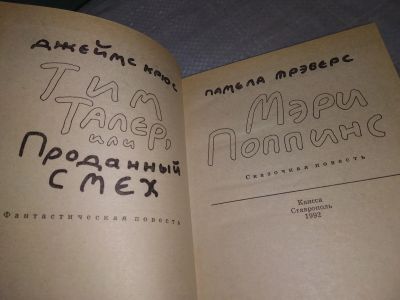 ДЖЕЙМС КРЮС
ТИМ
ТАЛЕР,
ИЛИ
ПРОДАННЫЙ
СМЕХ
Фантастическая повесть
ПАМЕЛА ТРЭВЕРС
МЭРИ
ПОППИНС
Сказочная повесть
Кансса
Ставрополь
1992